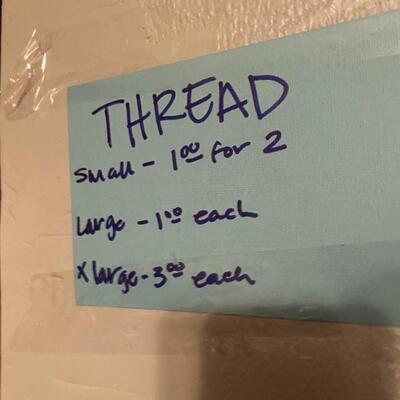 THREAD
small - 1.00 for 2
large - 1.00 each
x large - 3.00 each